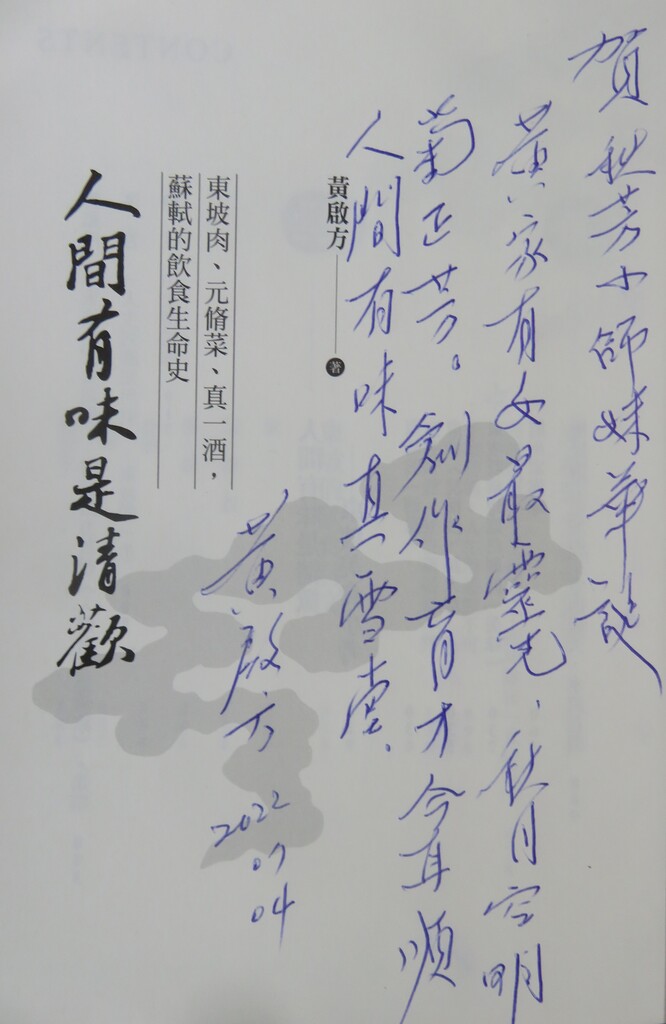 賀秋芳小師妹華誕
黃家有女最靈光、秋月空明
菊正芳。創作育才今耳順
人間有味真雪堂、
黃啟方
2022
07
04
黃啟方 著
東坡肉、元脩菜、真一酒,
蘇軾的飲食生命史
人間有味是清歡
CONTENTS